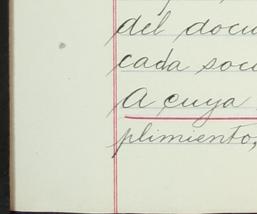 del docu
cada soci
A cuya
plimiento,